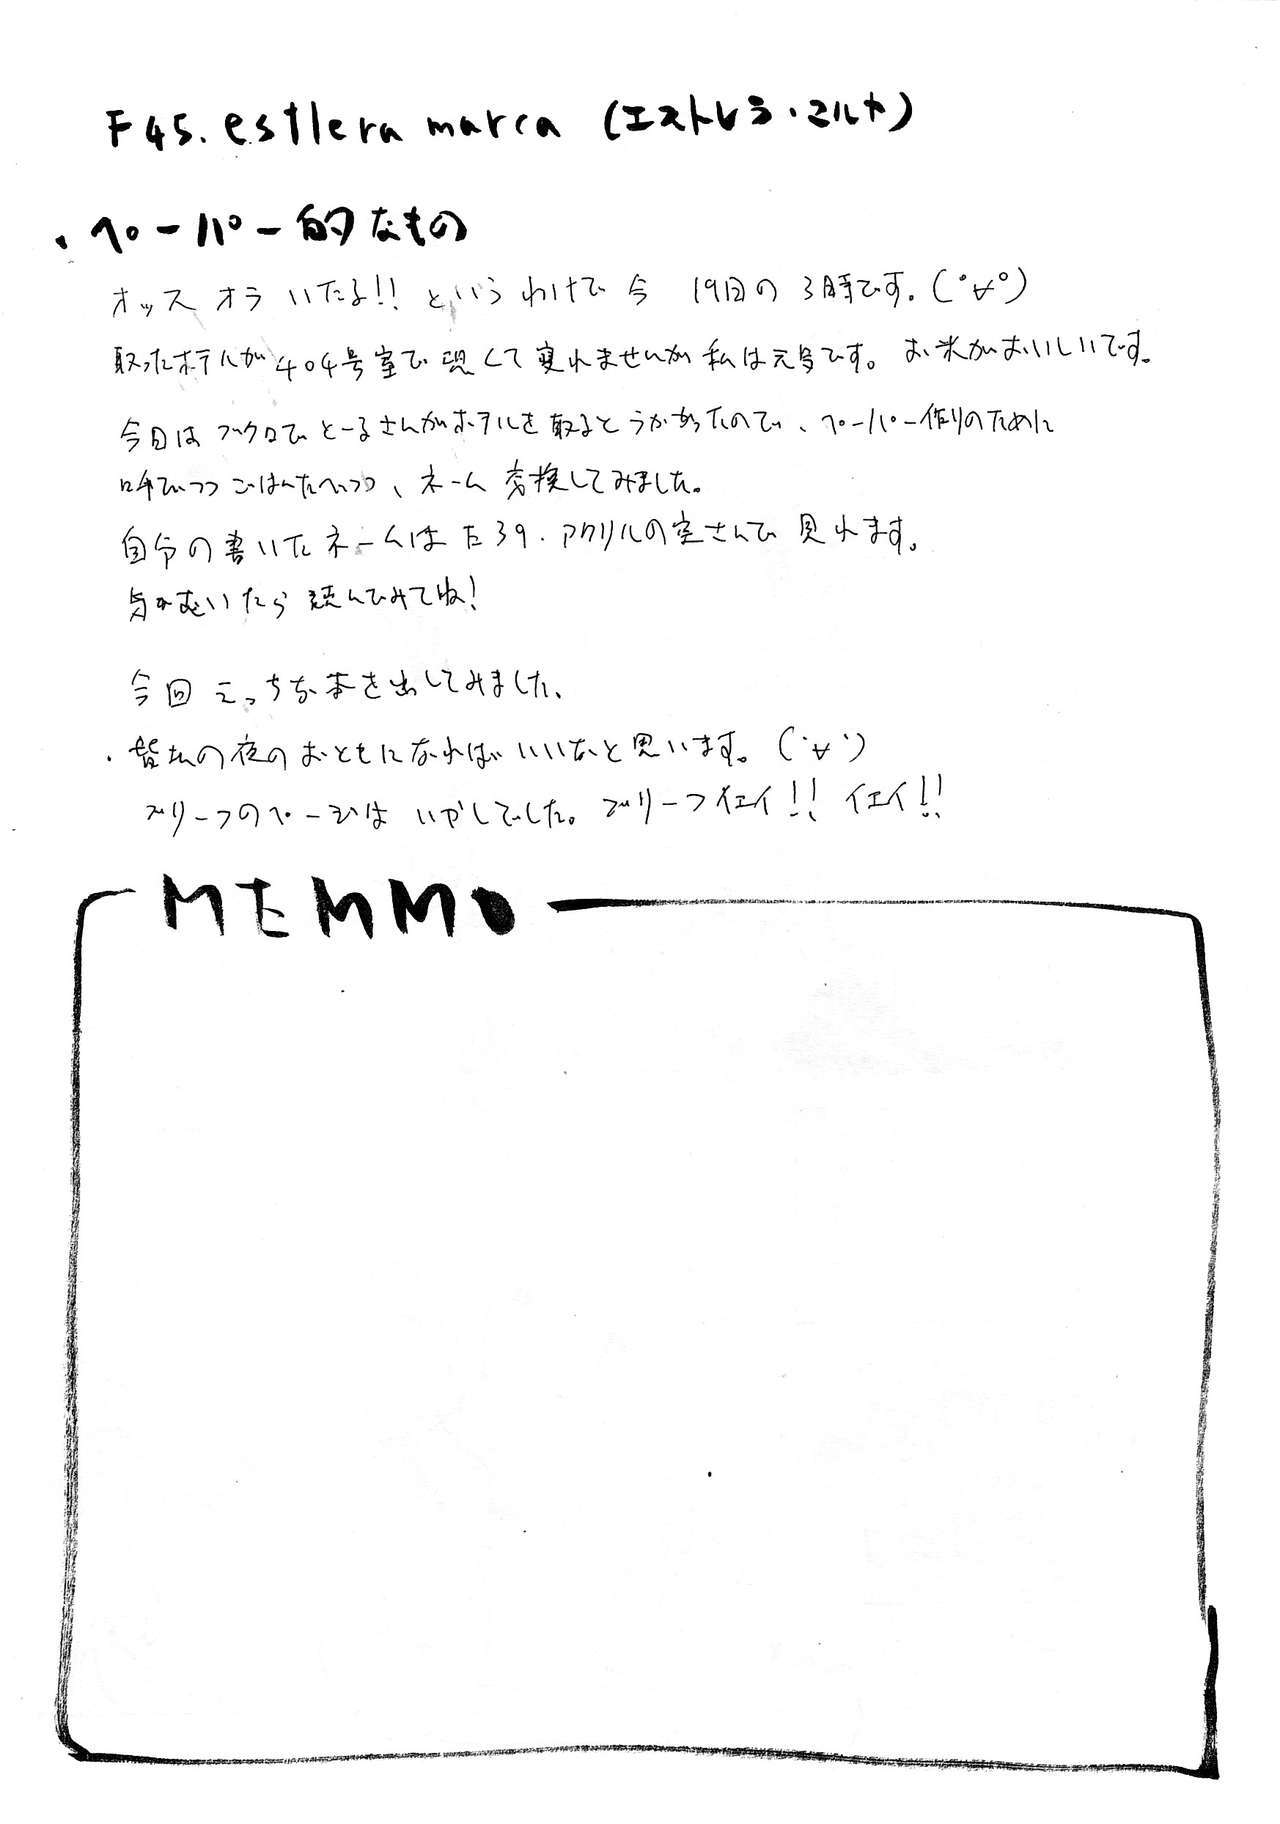 F45. estlera marca (エストレラ・マルカ)
・ペーパー的なもの
オッス オラ いたる!! というわけで 今 19日の 3時です。(ﾟ∀ﾟ)
取ったホテルが404号室で恐くて寝れませんが私は元気です。お米がおいしいです。
今日は ブクロで とーるさんがホテルを取るとうかがったので、ペーパー作りのために
呼びつつ ごはんたべつつ、ネーム 交換してみました。
自分の書いたネームは た39.アクリルの空さんで 見れます。
気がむいたら 読んでみてね!
今回 えっちな本を出してみました、
・皆さんの夜のおともになればいいなと思います。(˙∀˙)
ブリーフのページは いかしてでした。ブリーフイエイ!! イエイ!!
MEMMO